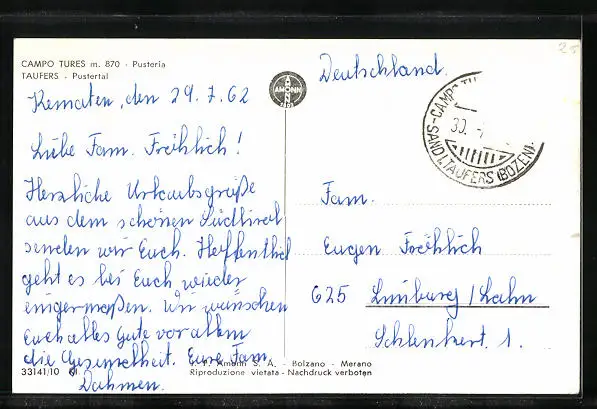 CAMPO TURES m. 870 - Pusteria
TAUFERS - Pustertal
Kematen, den 29.7.62
Liebe Fam. Fröhlich!
Herzliche Urlaubsgrüße
aus dem schönen Südtirol
senden wir Euch. Hoffentlich
geht es bei Euch wieder
einigermaßen. Wir wünschen
Euch alles Gute vor allem
die Gesundheit. Eure Fam.
Dahmen.
33141/10
AMONN
Deutschland.
CAMPO TU
30.
SAND I. TAUFERS (BOZEN)
Fam.
Eugen Fröhlich
625 Limburg / Lahn
Schlenkert. 1.
Amonn S. A. - Bolzano - Merano
Riproduzione vietata - Nachdruck verboten